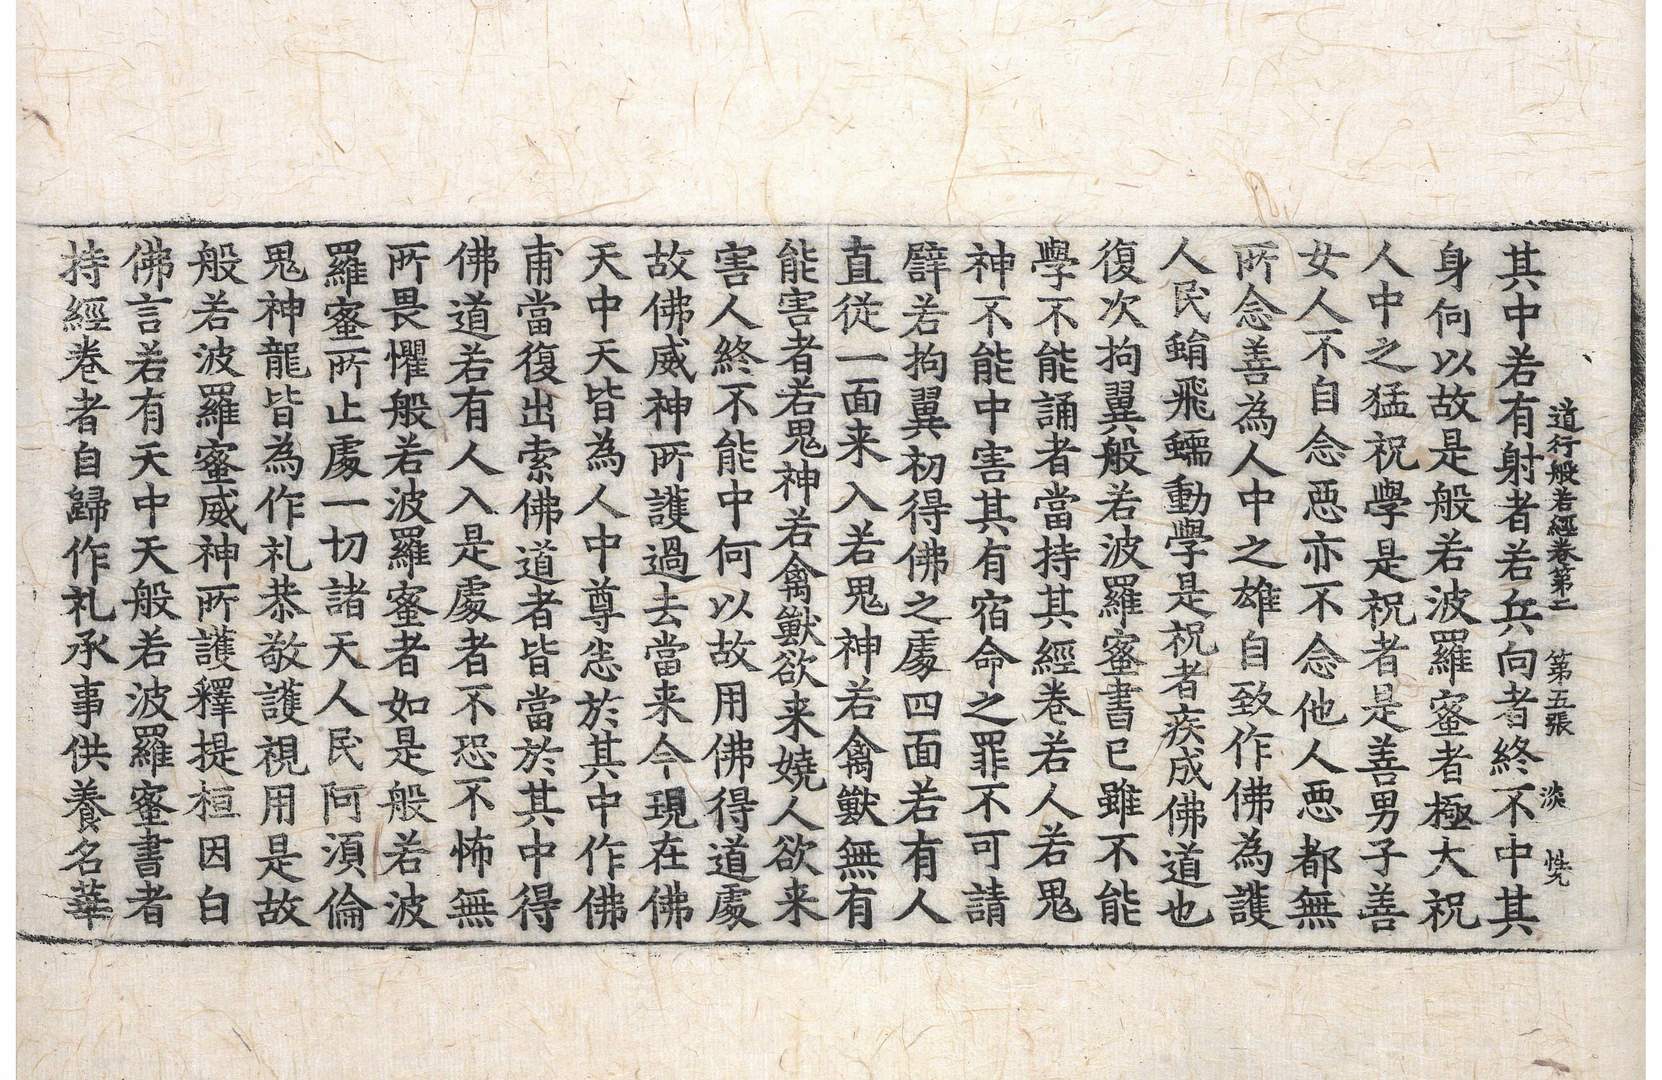 道行般若經卷第二 第五張 淡
其中若有射者若兵向者終不中其
身何以故是般若波羅蜜者極大祝
人中之猛祝學是祝者是善男子善
女人不自念惡亦不念他人惡都無
所念善為人中之雄自致作佛為護
人民蜎飛蠕動學是祝者疾成佛道也
復次拘翼般若波羅蜜書已雖不能
學不能誦者當持其經卷若人若鬼
神不能中害其有宿命之罪不可請
譬若拘翼初得佛之處四面若有人
直從一面来入若鬼神若禽獸無有
能害者若鬼神若禽獸欲来嬈人欲来
害人終不能中何以故用佛得道處
故佛威神所護過去當来今現在佛
天中天皆為人中尊悉於其中作佛
甫當復出索佛道者皆當於其中得
佛道若有人入是處者不恐不怖無
所畏懼般若波羅蜜者如是般若波
羅蜜所止處一切諸天人民阿須倫
鬼神龍皆為作礼恭敬護視用是故
般若波羅蜜威神所護釋提桓因白
佛言若有天中天般若波羅蜜書者
持經卷者自歸作礼承事供養名華